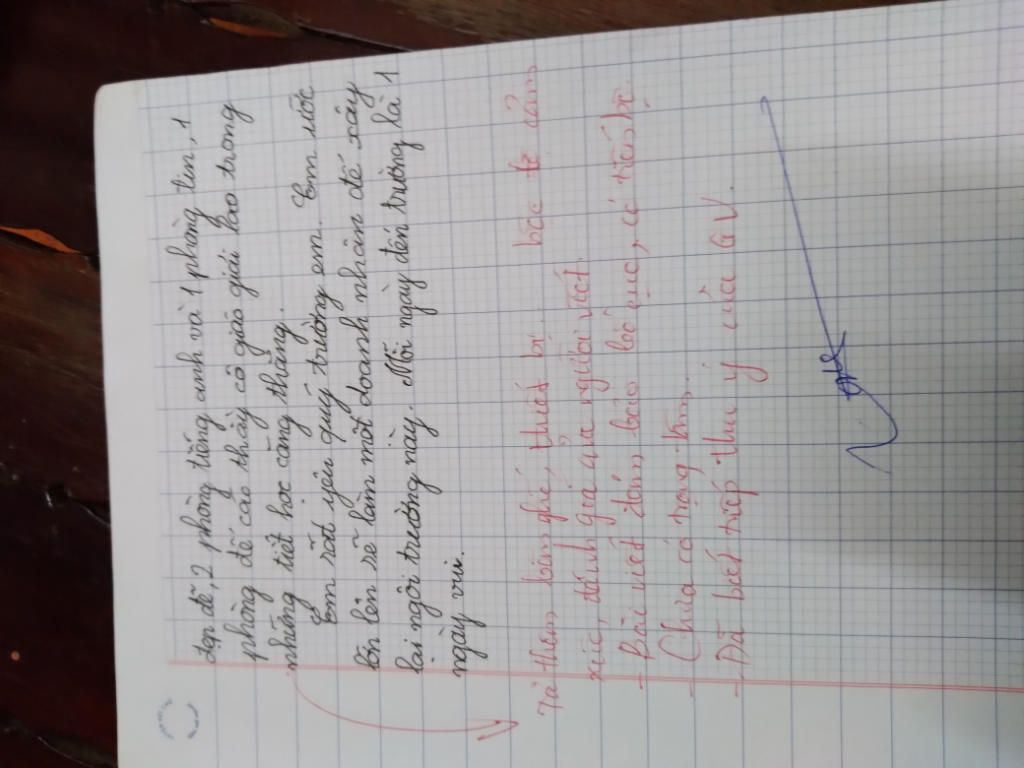 đẹp đẽ, 2 phòng tiếng anh và 1 phòng tin, 1
phòng để các thầy cô giáo giải lao trong
những tiết học căng thẳng.
Em rất yêu quý trường em. Em ước
lớn lên sẽ làm một doanh nhân để xây
lại ngôi trường này. Mỗi ngày đến trường là 1
ngày vui.
Tả thêm bàn ghế, thiết bị. bộc lộ cảm
xúc, đánh giá của người viết.
- Bài viết đảm bảo bố cục, có tiến bộ.
- Chưa có trọng tâm.
- Đã biết tiếp thu ý của GV.